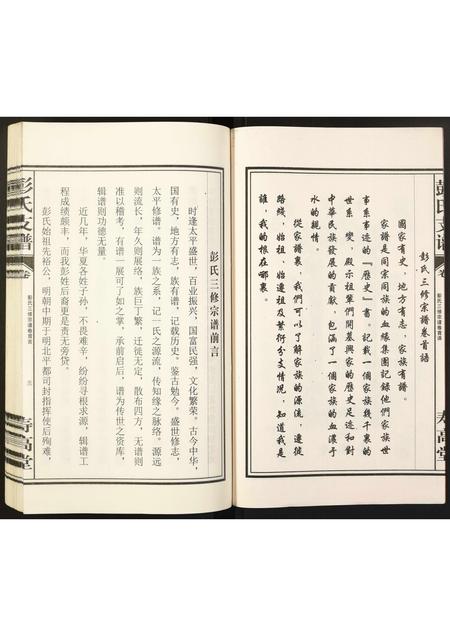 彭氏支谱
卷
彭氏三修宗谱卷首语
寿高堂
彭氏三修宗譜卷首語
國家有史，地方有志，家族有譜。
家譜是同宗同族的血緣集團記録家族世
事系事迹的『歷史』書。記載一個家族幾千裹的
世系變，殿示祖輩們開基興家的歷史足迹和對
中華民族發展的貢獻，包涵了一個家族的血濃乎
水的親情。
從家譜裹，我們可以了解家族的源流，遷徙
路綫，始祖、始遷祖及繁衍分支情况，知道我是
誰，我的根在哪裹。
彭氏三修宗谱前言
时逢太平盛世，百业振兴，国富民强，文化繁荣。古今中华，
国有史，地方有志，族有谱，记载历史。鉴古勉今。盛世修志，
太平修谱。谱为一族之系，记一氏之源流，传知缘之脉络。源远
则流长，年久则展络，族巨丁繁，迁徙无定，散布四方，无谱则
准以稽考，有谱一展可了如之掌，承前启后，谱为传世之资库，
辑谱则功德无量。
近几年，华夏各姓子孙，不畏难辛，纷纷寻根求源，辑谱工
程成绩颇丰，而我彭姓后裔更是责无旁贷。
彭氏始祖先裕公，明朝中期于明北平都司封指挥使后殉难，
彭氏支谱
卷
彭氏三修宗谱卷首言
三
寿高堂